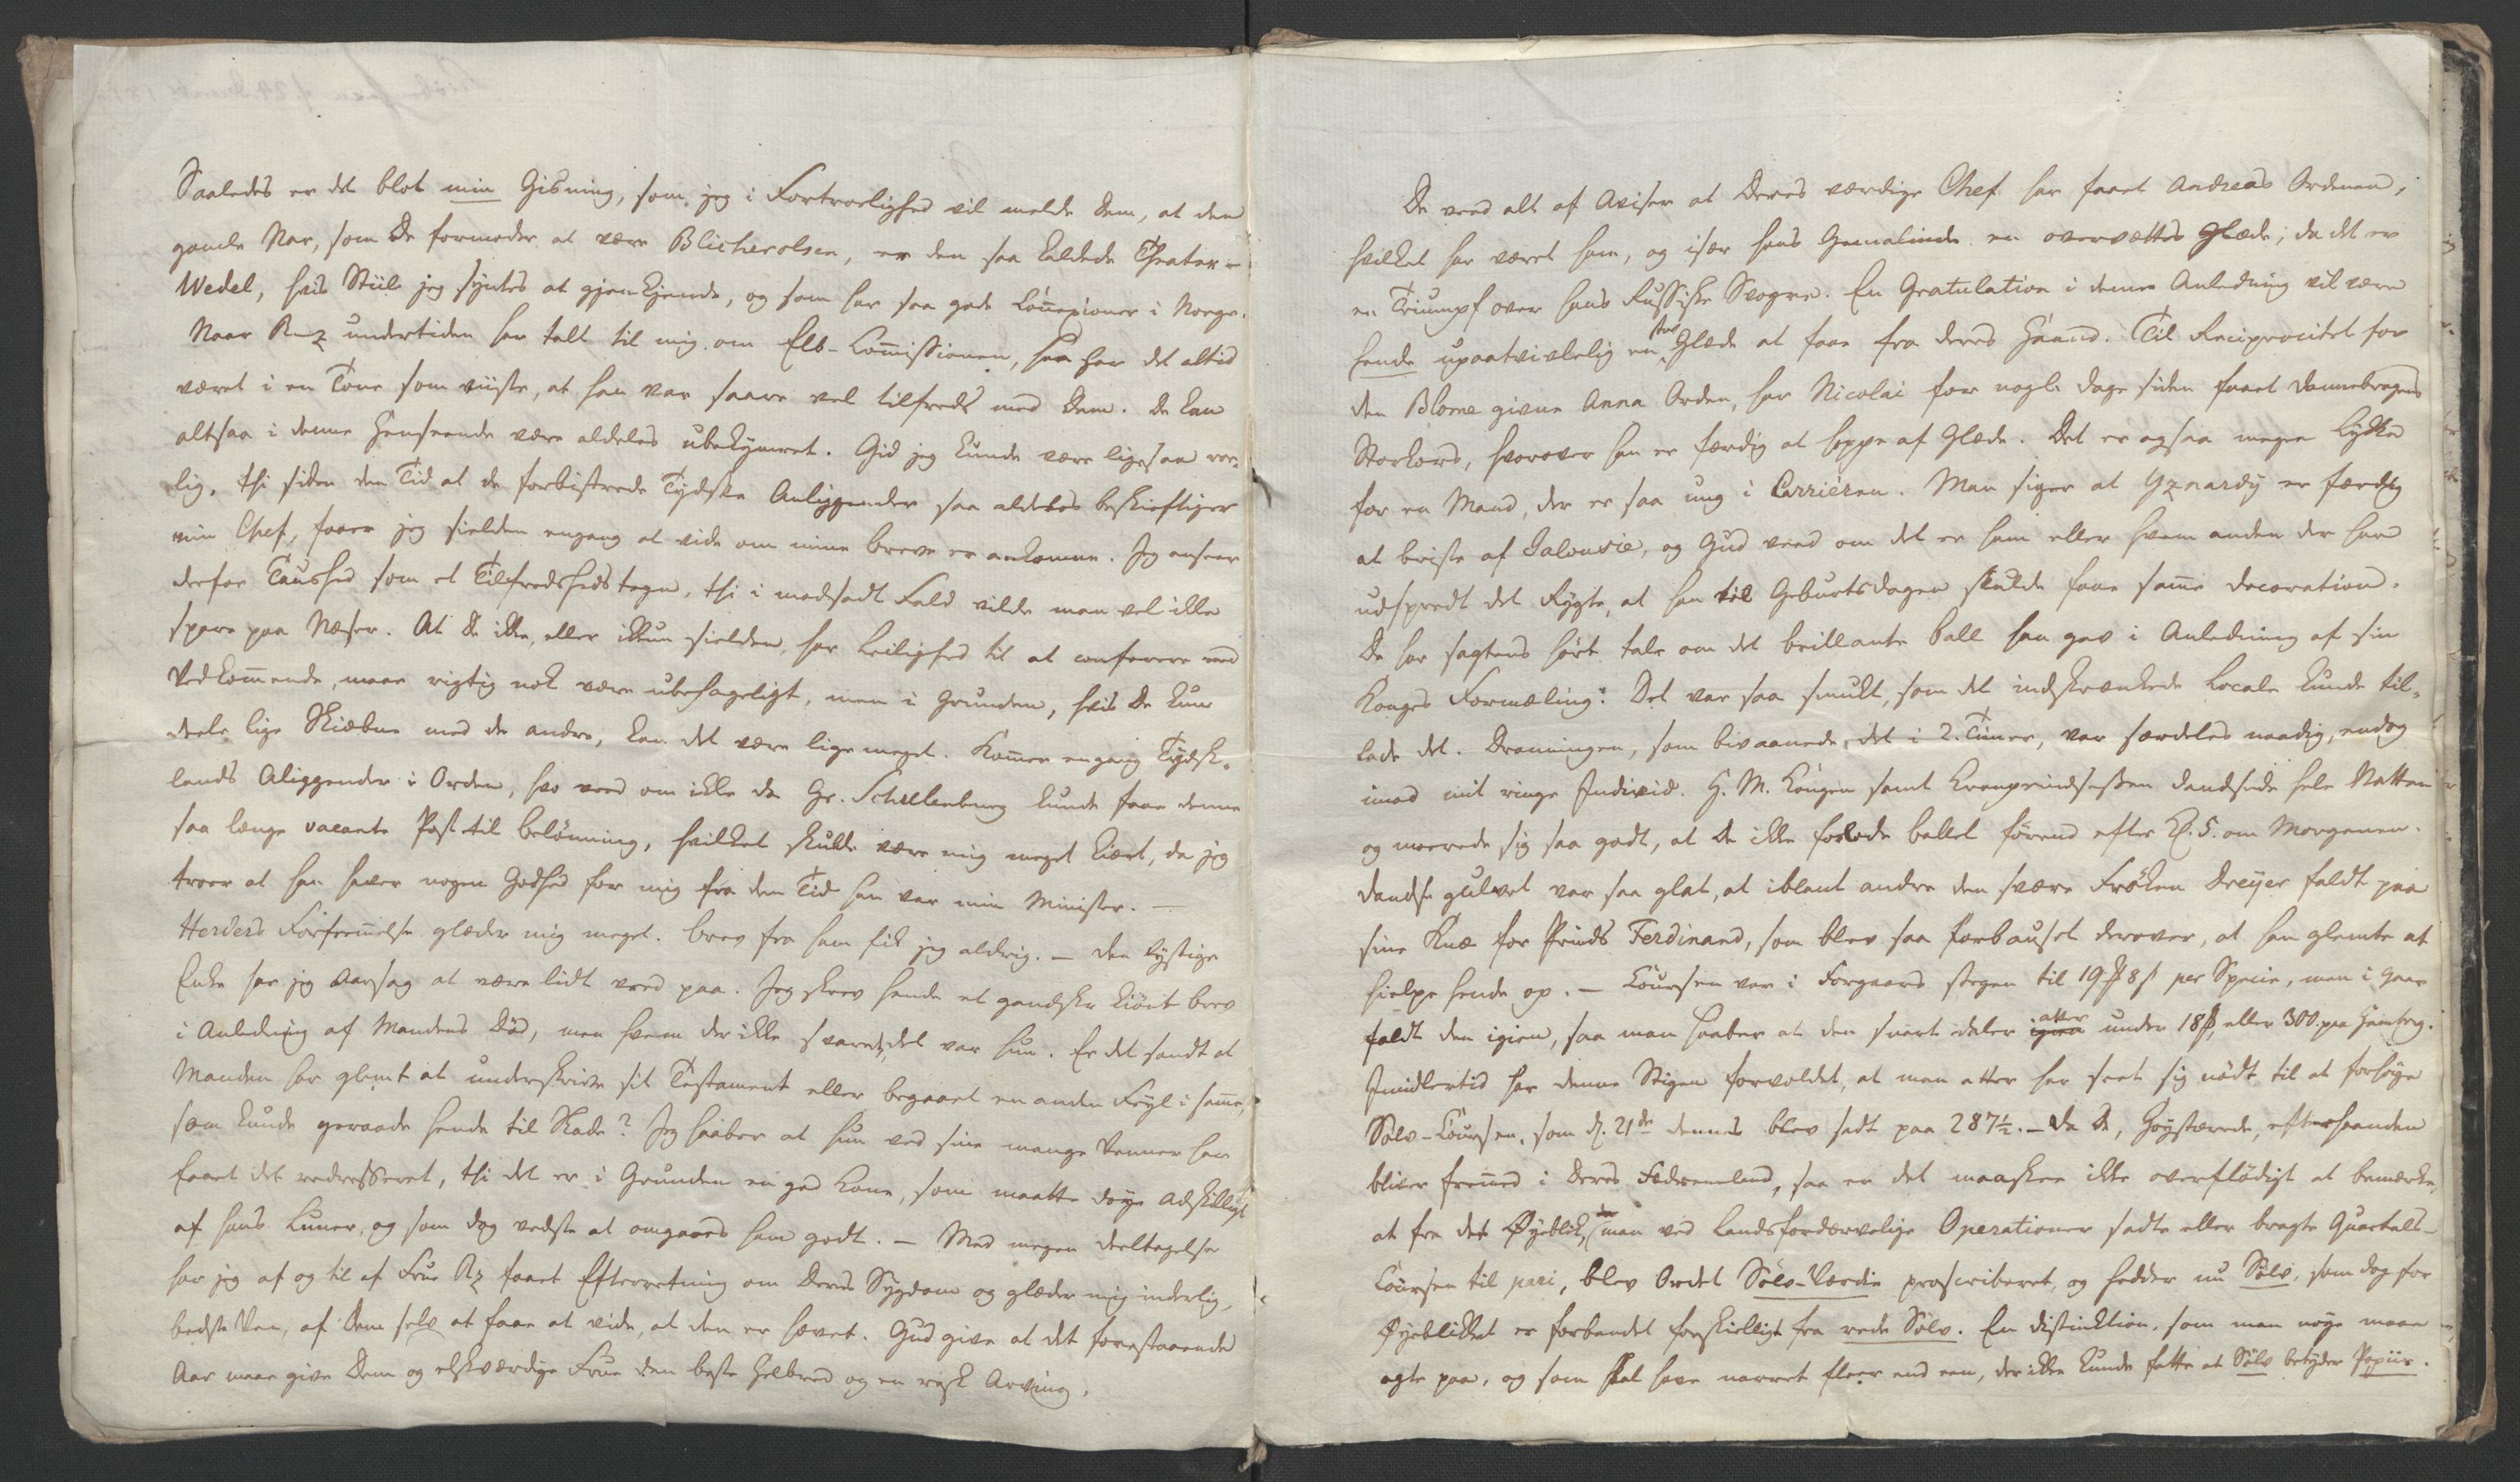 Saaledes er det blot min Gisning, som jeg i Fortrolighed vil melde Dem, at den
gamle Nar, som De formoder at være Blicherolsen, er den saa kaldede Theater-
Wedel, hvis Stiil jeg syntes at gjenkjende, og som har saa gode Connexioner i Norge.
Naar Rnz undertiden har talt til mig om Elb-Commissionen, saa har det altid
været i en Tone som viiste, at han var saare vel tilfreds med Dem. De kan
altsaa i denne Henseende være aldeles ubekymret. Gid jeg kunde være ligesaa roe-
lig, thi siden den Tid at de forbistrede Tydske Anliggender saa aldeles beskieftiger
min Chef, faaer jeg sielden engang at vide om mine breve er ankomne. Jeg anseer
derfor Taushed som et Tilfredshedstegn, thi i modsadt Fald vilde man vel ikke
spare paa Næser. At De ikke, eller ikkun sielden, har Leilighed til at conferere med
Vedkommende, maae rigtig nok være ubehageligt, men i Grunden, hvis De kun
deele lige Skiæbne med de andre, kan det være lige meget. Kommer engang Tydsk-
lands Aliggender i Orden, hvo veed om ikke da Gr. Schullenburg kunde faae denne
saa længe vacante Post til belönning, hvilket skulde være mig meget kiært, da jeg
troer at han haver nogen Godhed for mig fra den Tid han var min Minister. —
Herders Forfremmelse glæder mig meget. brev fra ham fik jeg aldrig. — Den lystige
Enke har jeg Aarsag at være lidt vred paa. Jeg skrev hende et gandske kiönt brev
i Anledning af Mandens Död, men hvem der ikke svarede, det var hun. Er det sandt at
Manden har glemt at underskrive sit Testament eller begaaet en anden Feyl i samme,
som kunde geraade hende til Skade? Jeg haaber at hun ved sine mange Venner har
faaet det redresseret, thi det er i Grunden en god Kone, som maatte döye adskilligt
af hans Luner, og som dog vedste at omgaaes ham godt. — Med megen deeltagelse
har jeg af og til af Frue Rz faaet Efterretning om Deres Sygdom og glæder mig inderlig,
bedste Ven, af Dem selv at faae at vide, at den er hævet. Gud give at det forestaaende
Aar maae give Dem og elskværdige Frue den beste Helbred og en rask Arving.
De veed alt af Aviser at Deres værdige Chef har faaet Andreas Ordenen,
hvilket har været ham, og især hans Gemalinde en overvættes Glæde, da det er
en Triumph over hans Russiske Svogre. En Gratulation i denne Anledning vil være
hende upaatvivlelig en stor Glæde at faae fra deres Haand. Til Reciprocitet for
den Blome givne Anna Orden, har Nicolai for nogle dage siden faaet Dannebrogens
Storkors, hvorover han er færdig at hoppe af Glæde. Det er ogsaa megen Lykke
for en Mand, der er saa ung i Carriéren. Man siger at Yznardy er færdig
at briste af Jalousie, og Gud veed om det er ham eller hvem anden der har
udspredt det Rygte, at han til Geburtsdagen skulde faae samme decoration.
De har sagtens hört tale om det brillante ball han gav i Anledning af sin
Konges Formæling. Det var saa smukt, som det indskrænkede Locale kunde til-
lade det. Dronningen, som bivaanede det i 2. Timer, var særdeles naadig, endog
imod mit ringe Individ. H. M. Kongen samt Kronprindsessen dandsede hele Natten
og morede sig saa godt, at De ikke forlode ballet förend efter Kl. 5. om Morgenen.
Dandse gulvet var saa glat, at iblant andre den svære Fröken Dreyer faldt paa
sine Knæ for Prinds Ferdinand, som blev saa forbauset derover, at han glemte at
hielpe hende op. — Coursen var i Forgaars stegen til 19 ₰ 8 ß per Specie, men i Gaar
faldt den igien, saa man haaber at den snart daler igien atter under 18 ₰, eller 300. pro Hamborg.
Imidlertid har denne Stigen forvoldet, at man atter har seet sig nödt til at forhöye
Sölv-Coursen, som d. 21de dennes blev sadt paa 287½. — Da De, Höystærede, efterhaanden
bliver fremmed i Deres Fædreneland, saa er det maaskee ikke overflödigt at bemærke,
at fra det Öyeblik, da man ved Landsfordærvelige Operationer sadte eller bragte Quartals-
Coursen til pari, blev Ordet Sölv-Værdie proscriberet, og hedder nu Sölv, som dog for
Öyeblikket er forbandet forskielligt fra rede Sölv. En distinktion, som man nöye maae
agte paa, og som skal have narret fleer end een, der ikke kunde fatte at Sölv betyder Papiir.